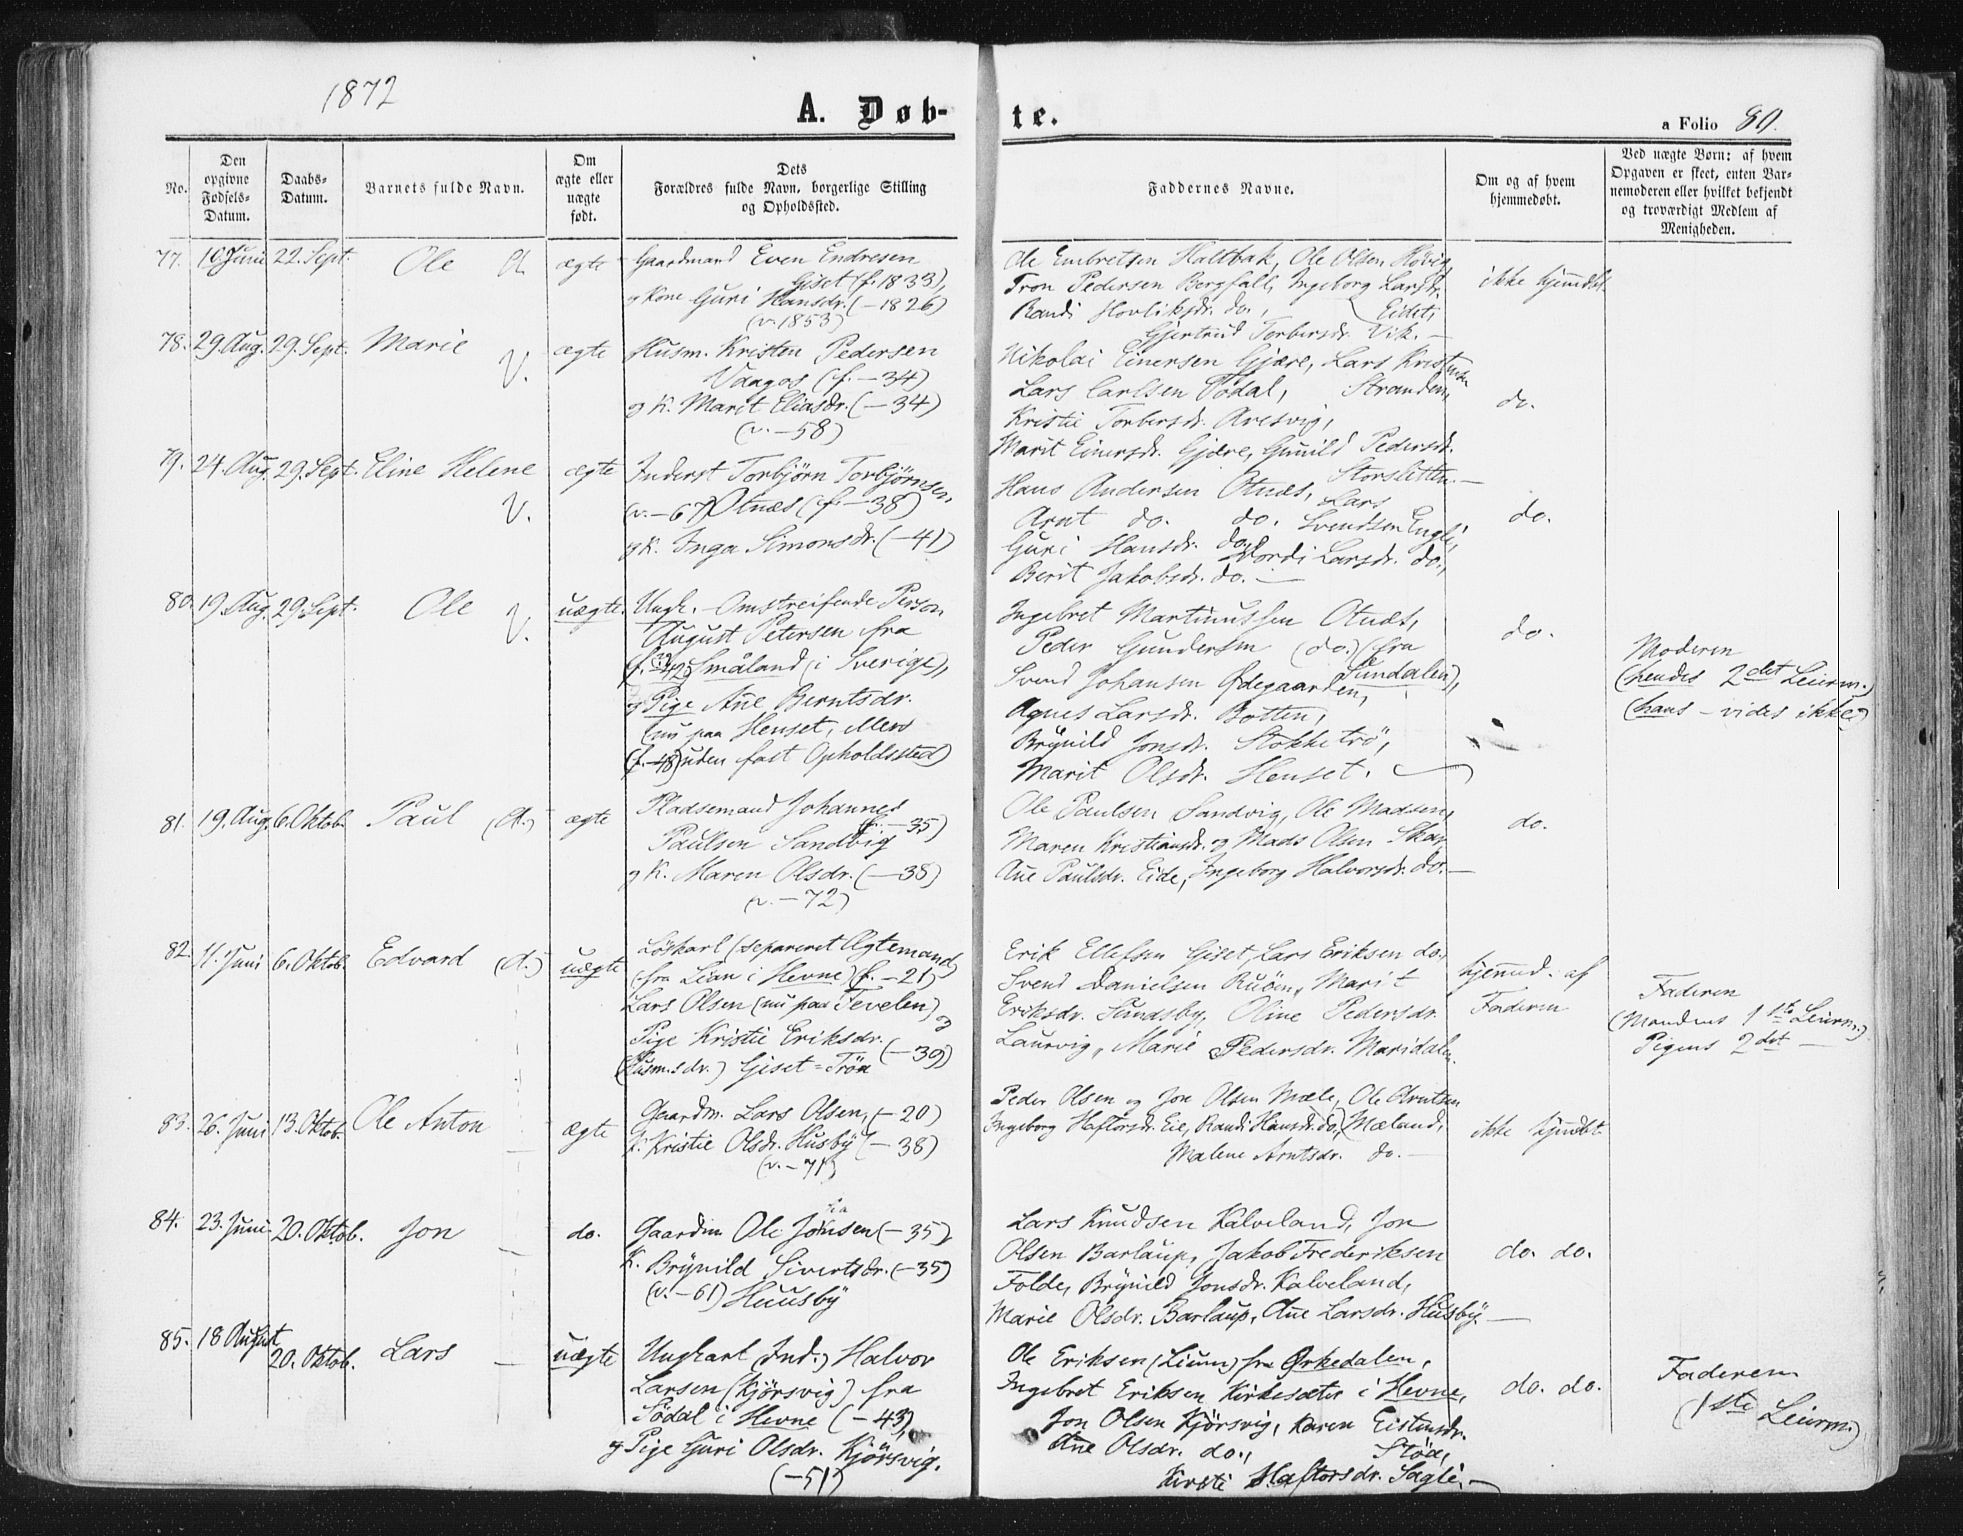 1872
A. Døb-
te.
a Folio 80.
No.
Den opgivne Fødsels-Datum.
Daabs-Datum.
Barnets fulde Navn.
Om ægte eller uægte født.
Dets Forældres fulde Navn, borgerlige Stilling og Opholdssted.
Faddernes Navne.
Om og af hvem hjemmedøbt.
Ved uægte Børn: af hvem Opgaven er skeet, enten Barnemoderen eller hvilket bekjendt og troværdigt Medlem af Menigheden.
77. 16 Juni 22. Sept. Ole A. ægte
Gaardmand Even Endresen
Giset (f. 1833),
og Kone Guri Hansdr. (- 1826)
(v. 1853)
Ole Embretsen Haltbak, Ole Olsen Høvig,
Tron Pedersen Bergfall, Ingeborg Larsdr.
Randi Hovliksdr. do., Eidet,
Gjertrud Torbersdr. Vik. -
ikke hjemdøbt
78. 29 Aug. 29. Sept. Marie V. ægte
Husm. Kristen Pedersen
Vaagos (f. - 34)
og K. Marit Eliasdr. (- 34)
(v. - 58)
Nikolai Einersen Gjære, Lars Kristensen
Lars Carlsen Todal, Stranden,
Kristie Torbersdr. Aresvig,
Marit Einersdr. Gjære, Gunild Pedersdr.
Storsletten. -
do.
79. 24. Aug. 29. Sept. Eline Helene V. ægte
Inderst Torbjørn Torbjørnsen,
(v. - 67) Otnæs (f. - 38)
og K. Inga Simonsdr. (- 41)
Hans Andersen Otnæs, Lars
Arnt do. do. Svendsen Engli,
Guri Hansdr. do. Mordi Larsdr. do.,
Berit Jakobsdr. do. -
do.
80. 19. Aug. 29. Sept. Ole V. uægte.
Ungk. - Omstreifende Person
August Petersen fra
(f. - 42?) Småland (i Sverige),
og Pige Ane Berntsdr.
(nu paa Henset, ellers
(f. - 48) uden fast Opholdssted)
Ingebret Martinussen Otnæs,
Peder Gundersen (do.) (fra
Sundalen),
Svend Johansen Ødegaarden,
Agnes Larsdr. Botten,
Brynild Jonsdr. Stokketrö,
Marit Olsdr. Henset.
do.
Moderen
(hendes 2det Leierm.)
(hans - vides ikke)
81. 19. Aug. 6. Oktob. Paul (A.) ægte
Pladsemand Johannes
(f. - 35)
Paulsen Sandvig
og K. Maren Olsdr. (- 38)
(v. - 72)
Ole Paulsen Sandvig, Ole Madsen,
Maren Kristiansdr. og Mads Olsen Skar,
Ane Paulsdr. Eide, Ingeborg Halvorsdr. do. -
do.
82. 11. Juni 6. Oktob. Edvard (A.) uægte
Löskarl (separeret Ægtemand)
(fra Lian i Hevne) (f. - 21)
Lars Olsen (nu paa Tevelen) og
Pige Kristie Eriksdr.
(- 39)
(Husm.sdr.) Giset=Tröa
Erik Ellefsen Giset, Lars Eriksen do.,
Svend Danielsen Ruöien, Marit
Eriksdr. Sundsby, Oline Pedersdr.
Laurvig, Marie Pedersdr. Maridalen.
hjemmd. af
Faderen
Faderen
(Mandens 1ste Leierm.)
Pigens 2det -
83. 26. Juni 13. Oktob. Ole Anton - ægte
Gaardm. Lars Olsen, (- 20)
K. Kristie Olsdr. Husby (- 38)
(v. - 71)
Peder Olsen og Jon Olsen Mæle, Ole Arntsen
Ingeborg Haftorsdr. Eie, Randi Hansdr. do., (Mæland,
Malene Arntsdr. do. -
ikke hjmdøbt.
84. 23. Juni 20. Oktob. Jon - do.
Gaardm Ole Johnsen (- 35)
K. Brynild Sivertsdr. (- 35)
(v. - 61) Huusby
Lars Knudsen Kalveland, Jon
Olsen Barlaup, Jakob Frederiksen
Folde, Brynild Jonsdr. Kalveland,
Marie Olsdr. Barlaup, Ane Larsdr. Husby. -
do. do.
85. 18 August 20. Oktob. Lars - uægte
Ungkarl (Ind.) Halvor
Larsen (Kjörsvig) fra
Södal i Hevne (- 43)
og Pige Guri Olsdr. Kjörsvig.
(- 51)
Ole Eriksen (Lium) fra Ørkedalen,
Ingebret Eriksen Kirkesæter i Hevne,
Jon Olsen Kjörsvig, Karen Eistensdr.
Ane Olsdr. do., Stöa,
Kirsti Haftorsdr. Sagli, -
do. do.
Faderen
(1ste Leierm.)